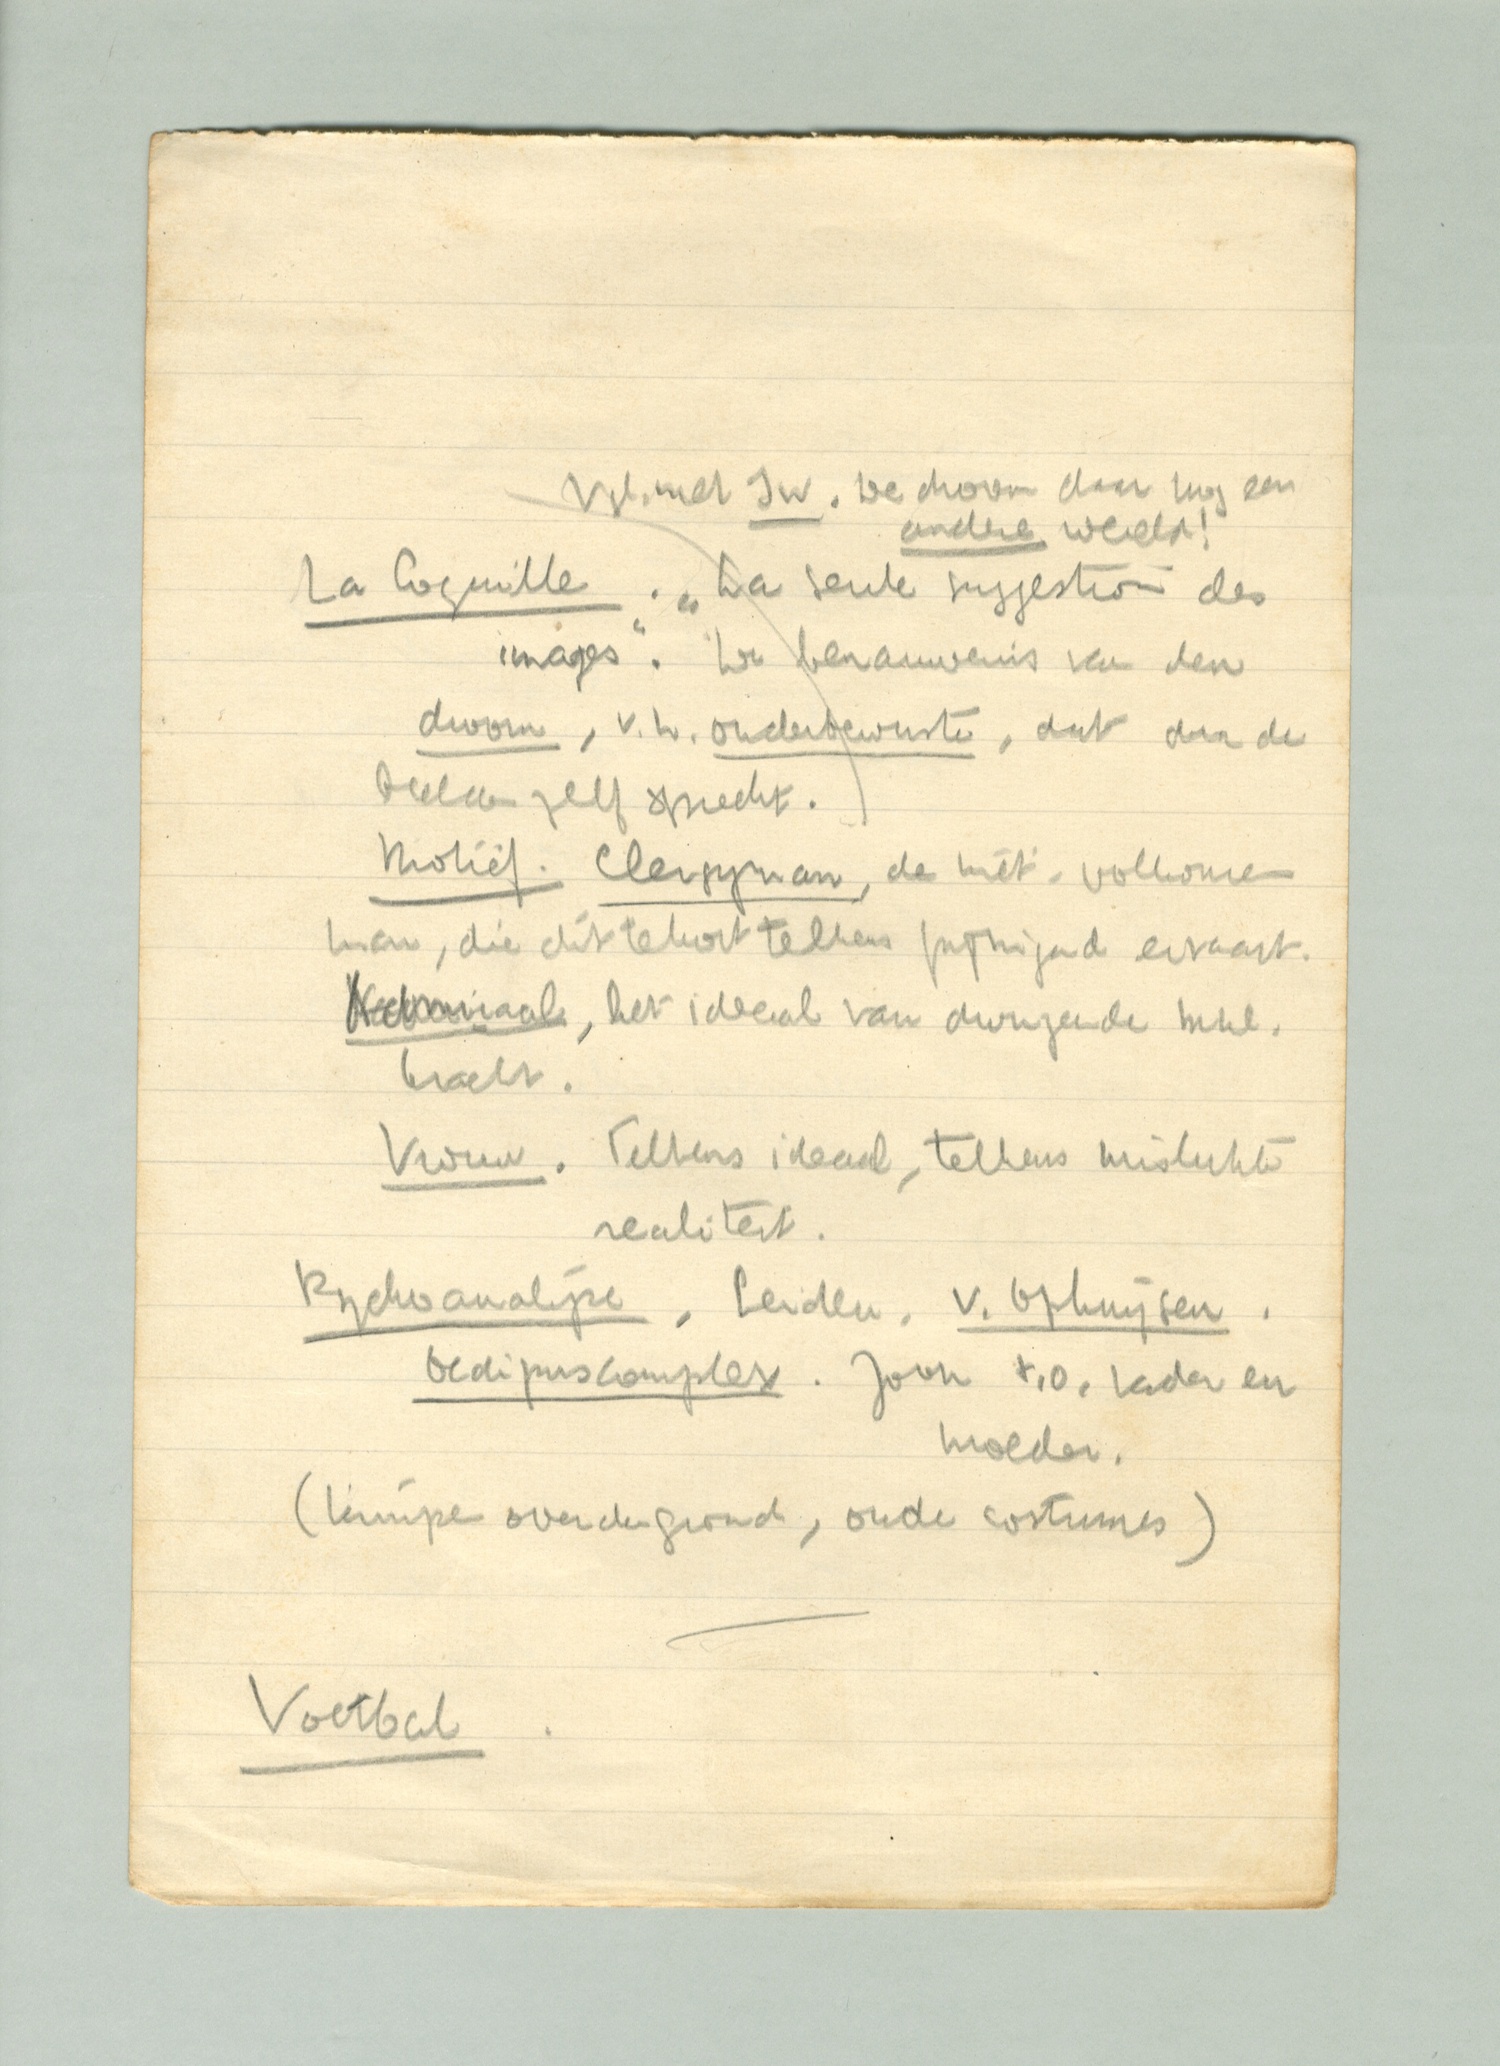 Vgl. met Iw. De droom daar nog een
andere wereld!
La Coquille. „La seule suggestion des
images". De benauwenis van den
droom, v.h. onderbewuste, dat door de
beelden zelf spreekt.
Motief. Clergyman, de niet-volkomen
man, die dit tekort telkens pijnigend ervaart.
, het ideaal van dwingende mnl.
kracht.
Vrouw. Telkens ideaal, telkens mislukte
realiteit.
Psychoanalyse, Leiden, v. Ophuijsen.
Oedipuscomplex. Zoon t.o. vader en
moeder.
(kruipen over den grond, oude costumes)
Voetbal.